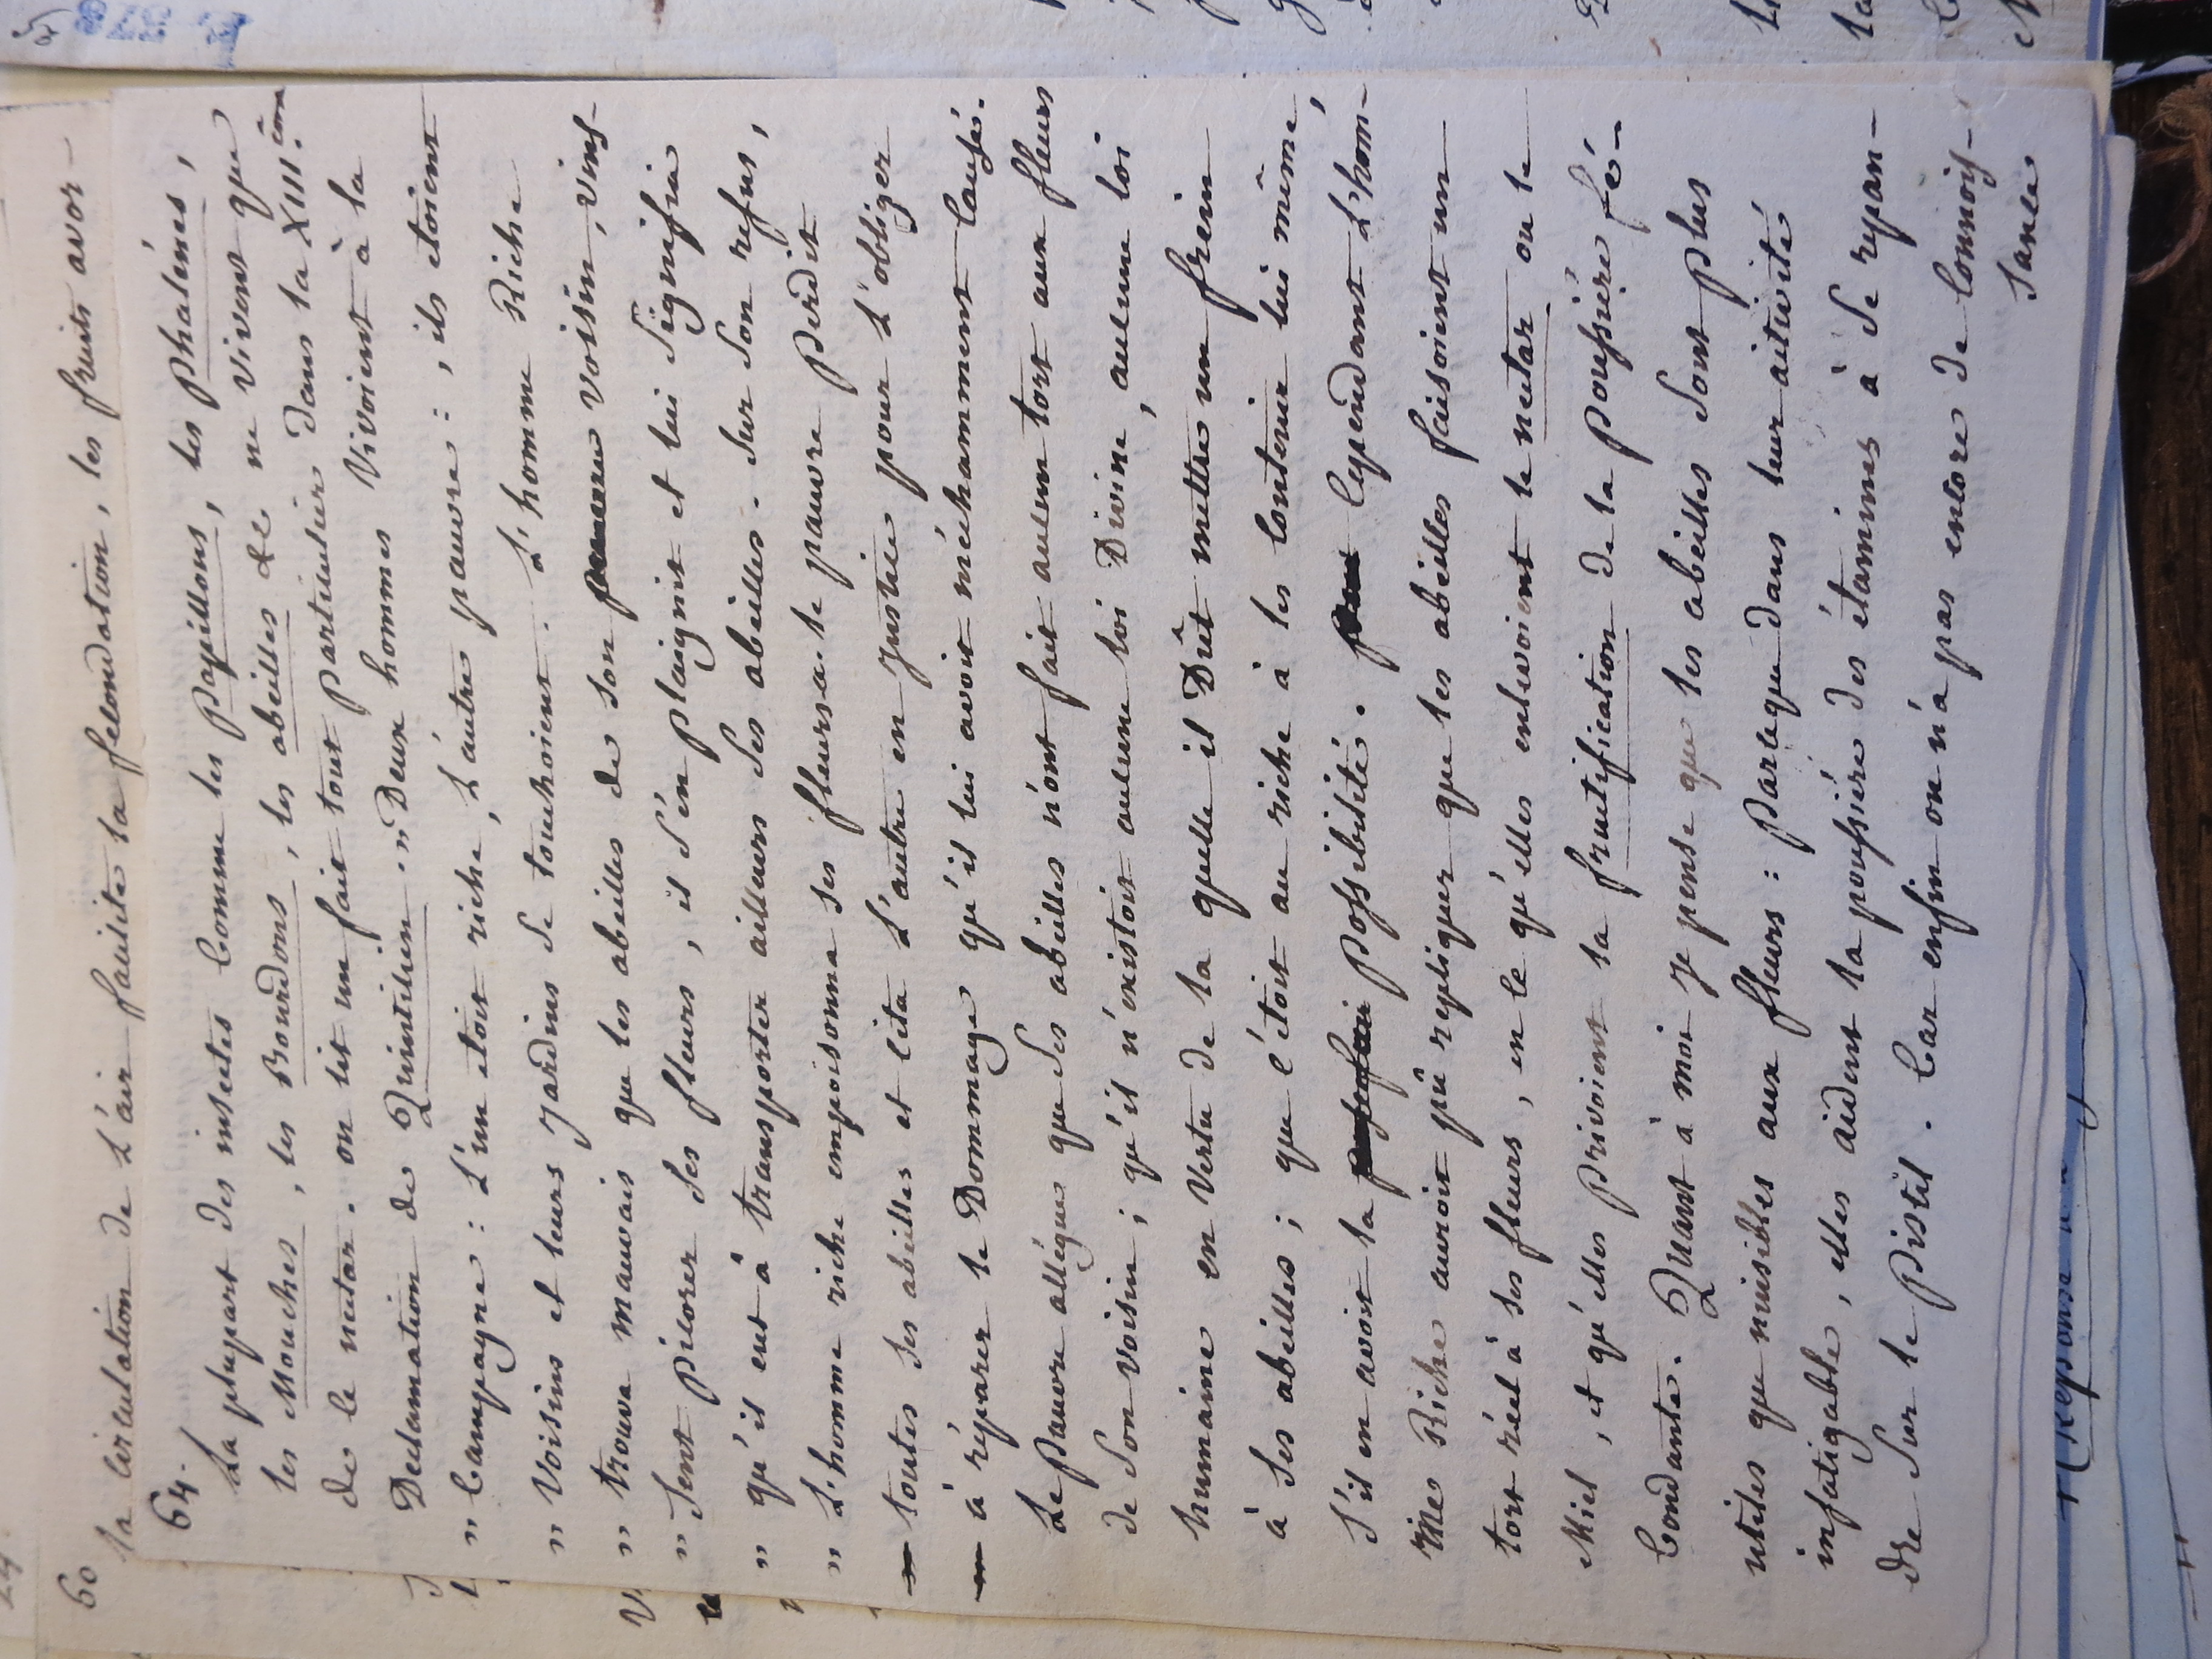 60
la circulation de l'air facilite la fecondation, les fruits avor-
64.
La plupart des insectes comme les Papillons, les Phalénes,
les Mouches, les Bourdons, les abeilles &c. ne vivent que
de le nectar. on lit un fait tout particulier dans la XIII.
Declamation de Quintilien. ,, Deux hommes vivoient à la
,, Campagne : L'un etoit riche, L'autre pauvre : , ils etoient
,, Voisins et leurs jardins se touchoient. L'homme Riche
,, trouva mauvais que les abeilles de son voisin, vins-
,, sent picorer ses fleurs, il s'en plaignit et lui signifia
,, qu'il eut à transporter ailleurs ses abeilles. sur son refus,
,, L'homme riche empoisonna ses fleurs. le pauvre perdit
toutes ses abeilles et cita L'autre en justice pour L'obliger
à réparer le Dommage qu'il lui avoit méchamment causé.
Le Pauvre allégua que ses abeilles n'ont fait aucun tort aux fleurs
de son voisin ; qu'il n'existoit aucune loi Divine, aucune loi
humaine en vertu de la quelle il Dût mettre un frein
à ses abeilles ; que c'étoit au riche à les contenir lui même,
s'il en avoit la possibilité. Cependant L'hom-
me Riche auroit pû repliquer que les abeilles faisoient un
tort réel à ses fleurs, en ce qu'elles enlevoient le nectar ou le
Miel, et qu'elles privoient la fructification de la poussière fé-
condante. Quant à moi je pense que les abeilles sont plus
utiles que nuisibles aux fleurs : parceque dans leur activité
infatigable, elles aident la poussière des étamines à se repan-
dre sur le Pistil. Car enfin on n'a pas encore de connois-
sance